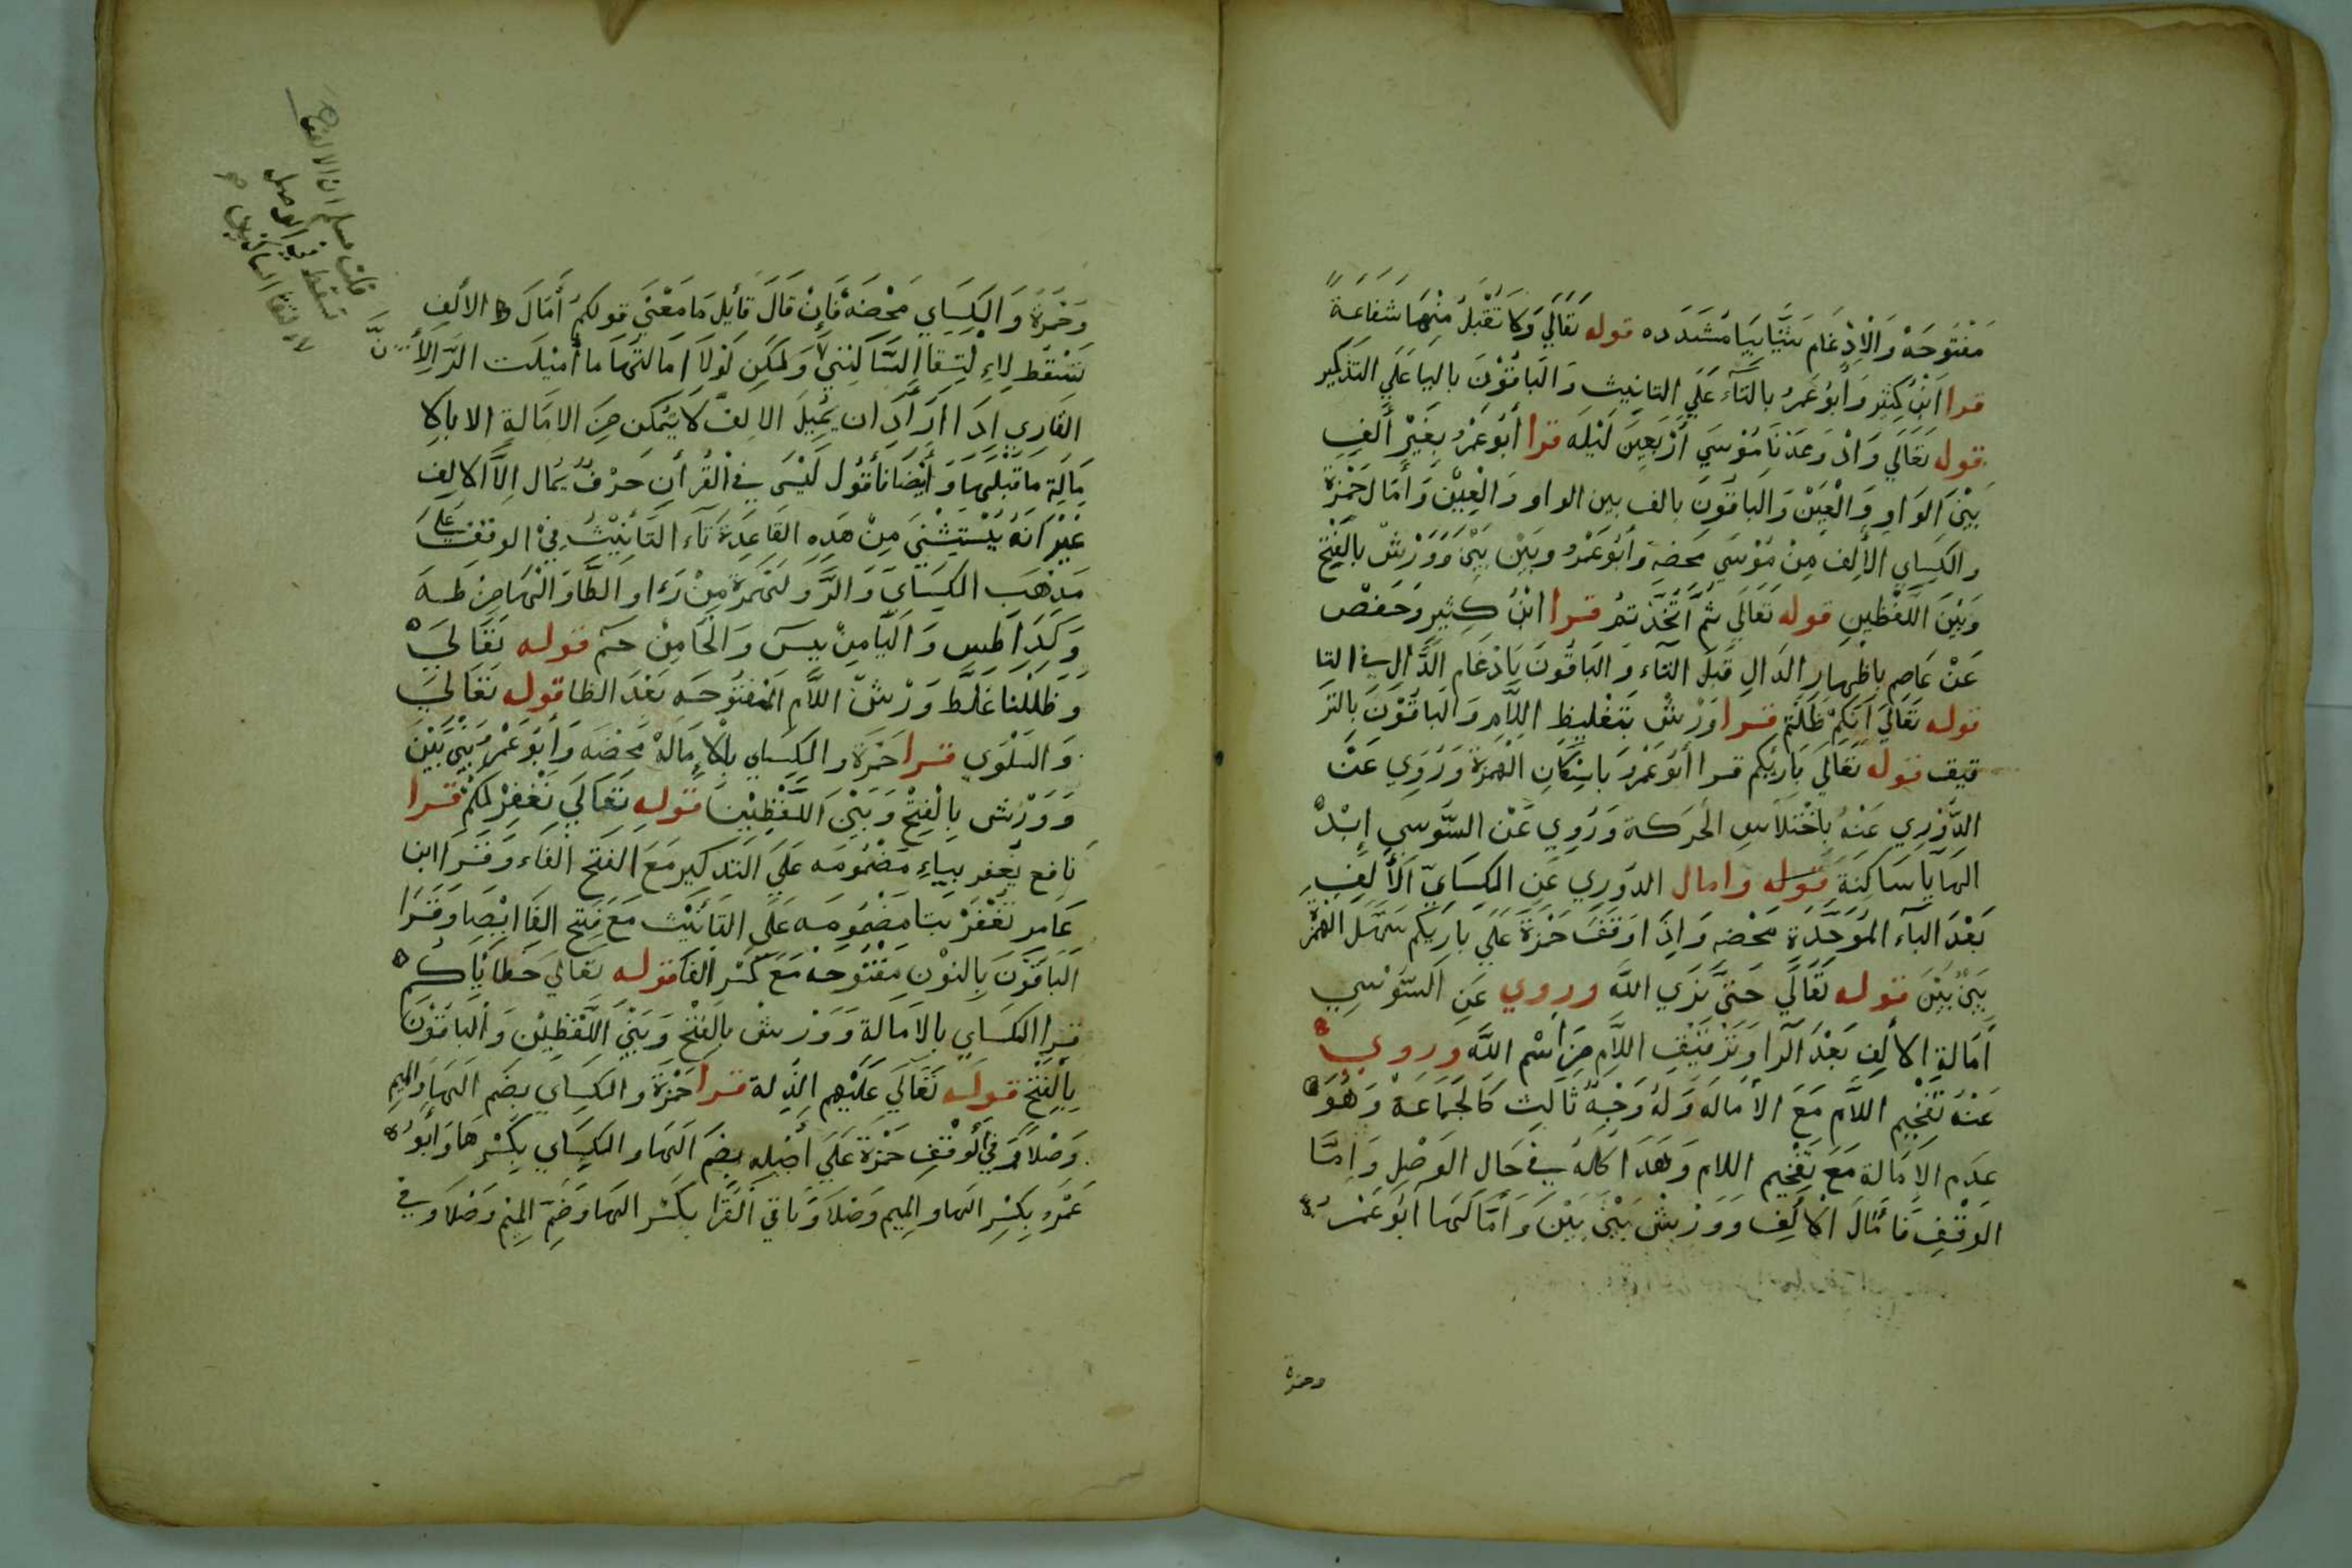 مَفْتوحَةْ وَالْاِدْغَام شَيَّا بِيَا مُشَدَده قوله تَعَالَي وَلَا تُقْبَلُ مِنْهَا شَفَاعَةً
قرا ابْنُ كَثِير وَأبُو عَمرُ بالتَآءِ عَلَي التانِيث وَالبَاقُوْنَ باليا عَلَي التَذكِير
قوله تَعَالَي وَاذْ وَعَدْنَا مُوْسَي أرْبَعِينَ لَيْلَه قرا أبُو عَمْرُ بِغَيْرِ ألفِ
بَيْنَ الوَاوِ وَالْعَيْنْ وَالبَاقُونَ بالف بين الواو وَالْعِيْنْ وَأمَالَ حَمْزة
والكِسِاي الألِف مِنْ مُوْسَي مَحضِة وَأبُو عَمْرُ وبَيْن بَيْنَ وَوَرْشْ بِالْفَتْحِ
وَبَيْنَ اللَّفْظِينِ قوله تَعَالَي ثُمَّ اتَّخَذْتمُ قرا ابْنُ كَثِير وَحَفصْ
عَنْ عَاصِم باظِهارِ الدَال قَبلَ التَاء وَالبَاقُونَ بَادْغام الدَّالِ في التِا
قوله تعَالَي اَنَكمْ ظَلَمتم قرا وَرْشْ بتَغليظِ اللاَّمِ وَالبَاقُوْنَ بِالتر
قيق قوله تعَالَي بَارئِكم قرا أبُو عَمْرُ بَاسْكانِ الهَمزة وَرُوِي عَنْ
الدَّوْرِي عَنْهُ بِاخْتلاَسِ الحَركَة وَرُوِي عَنْ السَّوسِي إبْدْ
الهَا يَا سَاكِنَةَ قوله وامال الدوَرِي عَنِ الكِسَايّ اَلأَلِفِ
بَعْدَ البَآء المُوَحَّدَةِ مَحْضِه وَاذِا وَقَفَ حَمْزةَ عَلَي بَارِيكم سَهَّل الهَمْزَ
بَيْنْ بَيْنَ قوله تَعَالَي حَتَّي نَرَي اللَّه وروي عَنِ السَّوْسِي
أمَالةِ الألِفِ بَعْدَ الرا وَتَرْقيْقِ اللاَّمِ مِنَ اسْم اللَّه وَروي
عَنْهُ تَفْخِيم اللاَّم مَعَ الأمَاله وَلهُ وَجْه ثَالِث كَالْجَمَاعَة وَهُوَ
عدَم الاِمَالة مَعَ تَفْخِيم اللام وَهَذا كلهُ في حَالِ الوَصْلِ وَامَّا
الوَقْفِ فَأمَّالَ الْألِف وَوَرْشْ بَيْنَ بَيْنَ وَأمَّا لَهَا أبُو عَمْرُ
وحمزة
وَحَمْزَةُ وَالكِسَاي مَحْضَة فَإنْ قَالَ قائِل مَا مَعْنَي قولكمْ أمَالَ الألفِ
تَسْقط لاِءِلْتِقا السَّاكِنَيْنِ وَلكن لَوْلاَ امَالتهَا مَا أميْلَت الرَّا لأنَّ
القَارِي اِذَا ارَادَ ان يُمِيْلَ الالِفْ لاَ يَتمكن مِنَ الامَالةِ الا باِلا
مَالَة مَا قَبْلَهَا وَأيْضَا نَأقُول لَيْسَ فيْ القُرأنِ حَرْفْ يُمَال اِلاَّ الألِف
غَيْرَ انَهُ يُسْتَثْنِي مِنْ هَذِهِ القَاعِدَة تَاء التَأنِيْثُ فِيْ الوقفَ عَلَي
مَذْهَب الكِسَاي وَالرَّا وَالهَمْزة مِنْ رَءا وَالطَّا وَالْهَا مِنْ طه
وَكذا طس وَاليَا مِنْ يس وَالحَا مِنْ حم قوله تعَالَيَ
وَظَللْنا غَلَّط وَرْشْ اللاَّم الْمَفتُوحَه بَعْدَ الظا قوله تَعَالَي
وَالسَلْوَي قرا حَمْزَة والكِسَاي بالإمَالَة مَحْضَه وَأبُو عَمْرُ بَيْنَ بَيْنَ
وَوَرْش بِالْفَتْحْ وَبَيْنَ اللَّفْظِيْنَ قوله تَعَالَي نَغْفِرْ لَكمْ قرا
نَافِع يُغْفر بِياءِ مَضْمُومَه عَلَيَ التذكير مَعَ الفَتْح الفَاء وَقَرَا ابن
عَامِر تُغْفَرْ بتا مَضْمُومَه عَلَي التَأنيْث مَعَ فَتح الفَا ايْضا وَقَرا
البَاقُونَ بالنوْنِ مَفْتُوحَة مَعَ كسْرِ الفَا قوله تعَالَي خَطَايَاكُمْ
قرا الكسَاي بالاَمَالة وَوَرْش بِالفَتْح وَبَيْنَ اللَّفْظَيْن وَالْبَاقُوْنَ
بِالْفَتْح قوله تَعَالَي عَلَيْهِم الذِلة قرا حَمْزَة والكِسَاي بضَم الهَا والميم
وَصْلاً وَفي الوَقْفِ حَمْزَة عَلَيَ أصْلِه بضمَ الَهَا والكِسَاي بِكَسْرِهَا وَأبُو
عَمْرُ بِكسْرِ الها والمِيم وَصْلاً وَبَاقي القرَا بكَسْر الهَا وَضَمّ المِيْم وَصْلاً وَفي
قلت مسلم ان الالف
تسقط في الوصل
لالتقا الساكنين